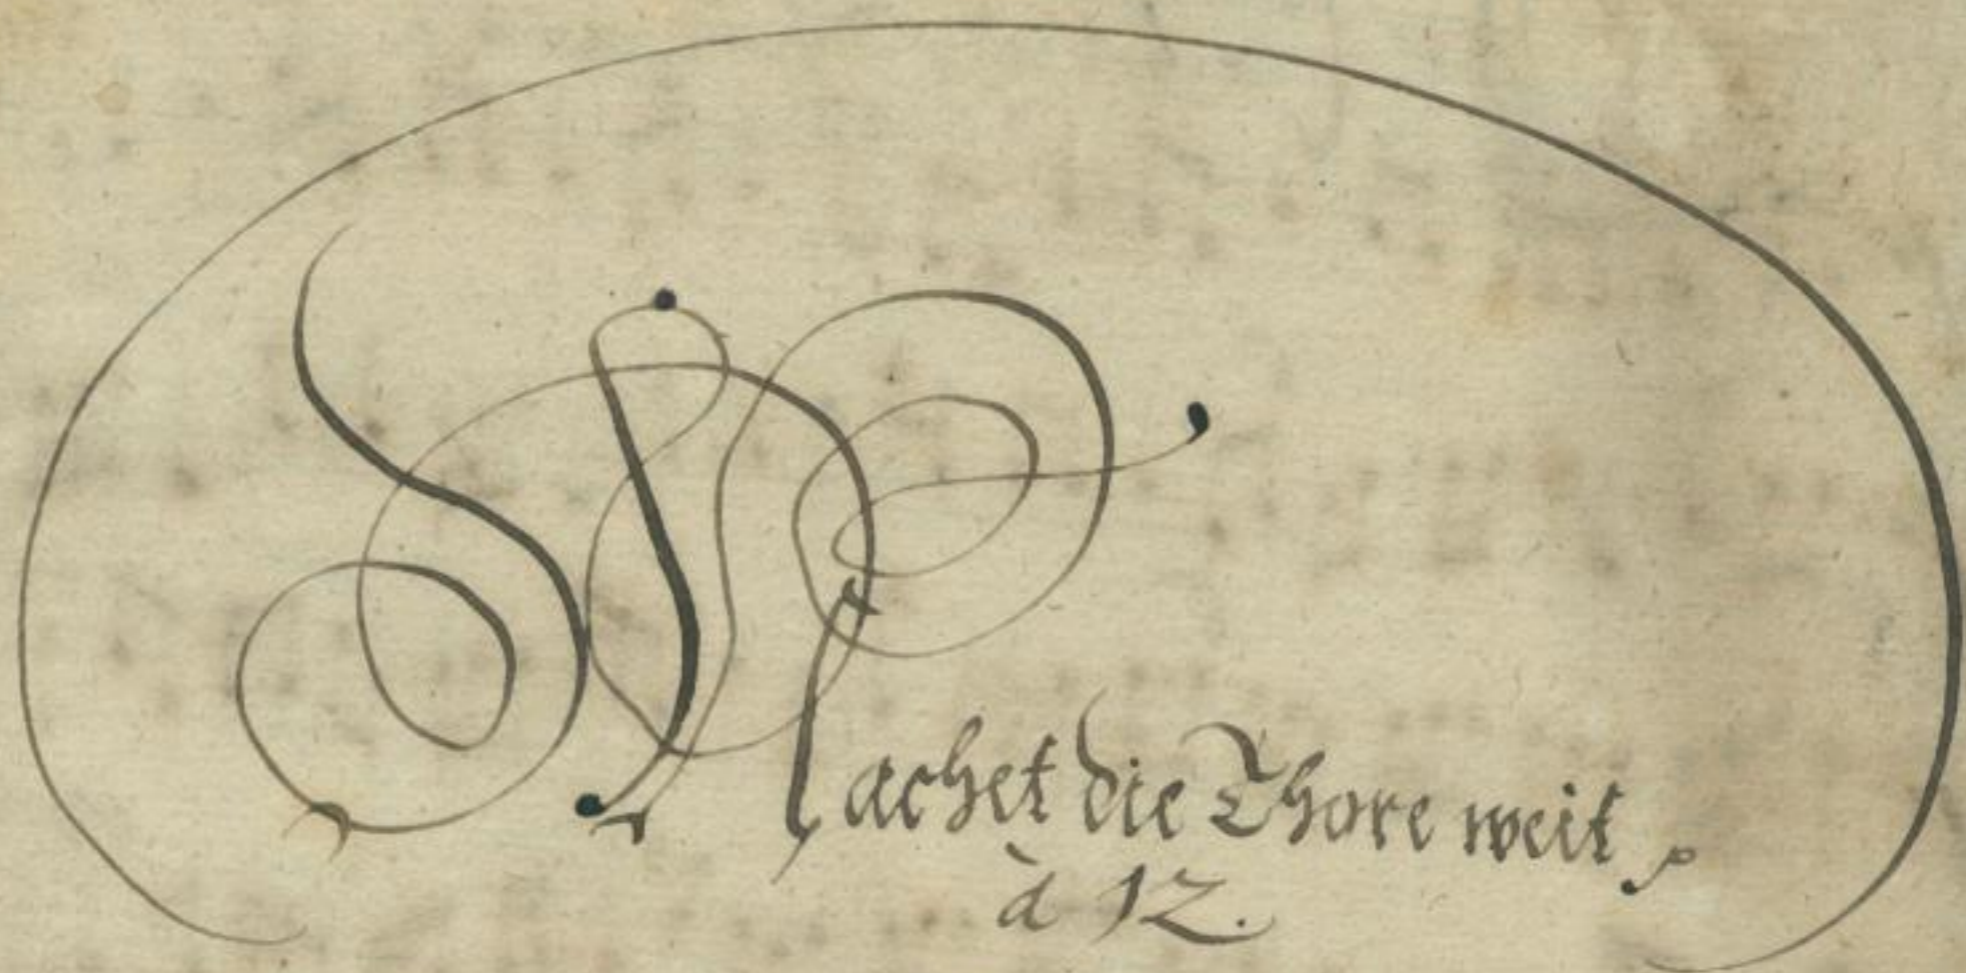 Machet die Thore weit
à 12.